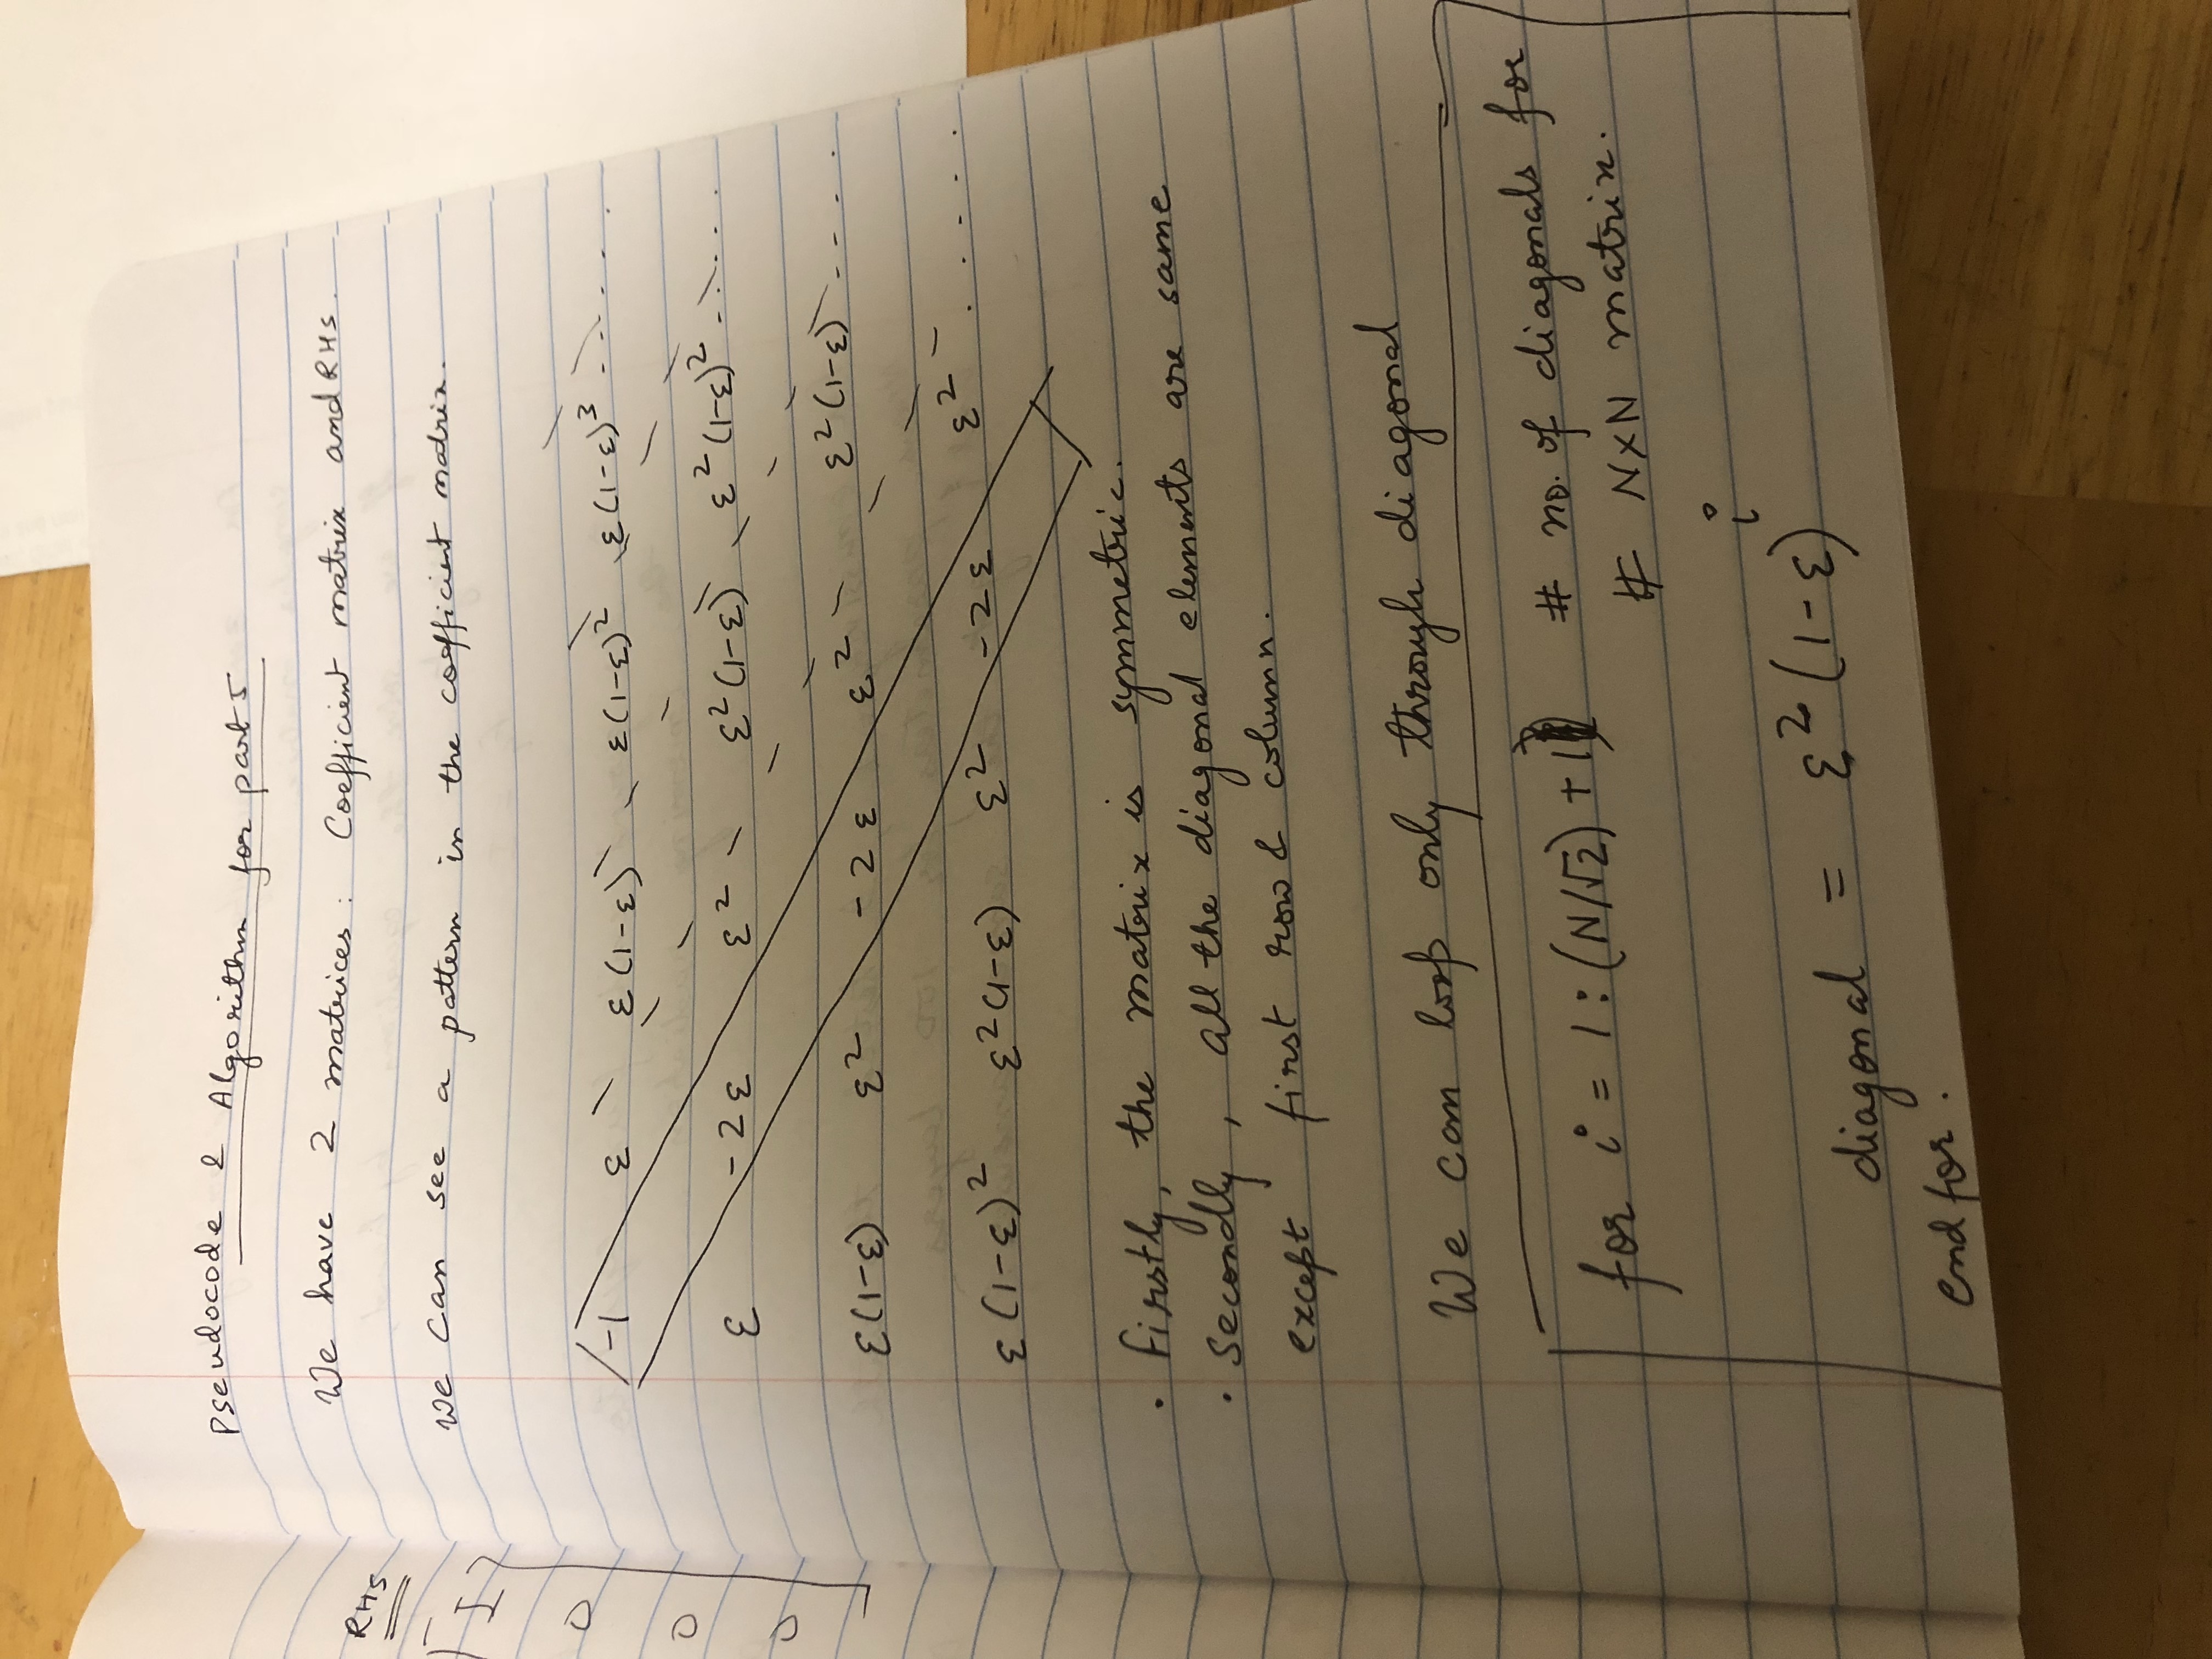 RHS
I
0
0
0
Pseudocode & Algorithm for part 5
We have 2 matrices: Coefficient matrix and RHS.
We can see a pattern in the coefficient matrix.
-1 ε ε(1-ε) ε(1-ε)² ε(1-ε)³ . . . . . .
ε -2ε ε² ε²(1-ε) ε²(1-ε)² . . . . .
ε(1-ε) ε² -2ε ε² ε²(1-ε) - - - .
ε(1-ε)² ε²(1-ε) ε² -2ε ε² . . . . .
• Firstly, the matrix is symmetric.
• Secondly, all the diagonal elements are same
except first row & column.
We can loop only through diagonal
for i = 1:(N/√2)+1 # no. of diagonals for
# N×N matrix.
diagonal = ε²(1-ε)^i
end for.